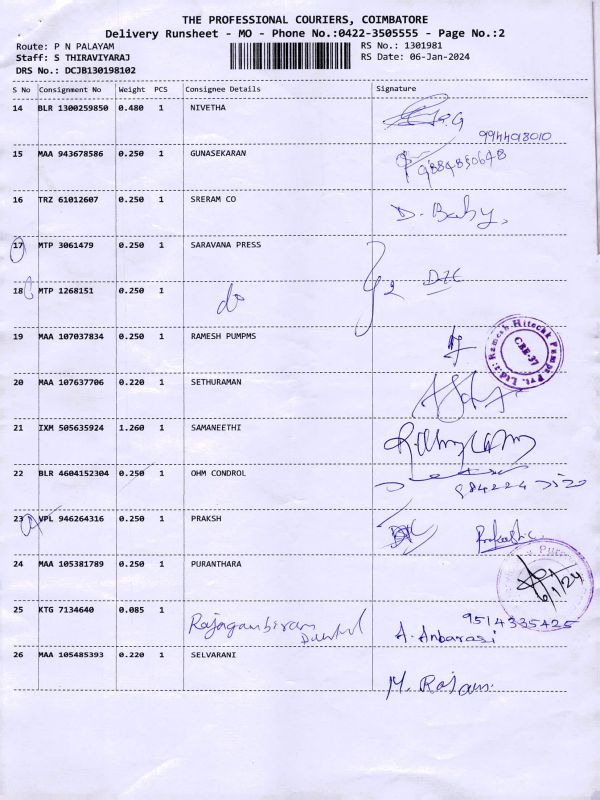 THE PROFESSIONAL COURIERS, COIMBATORE
Delivery Runsheet - MO - Phone No.:0422-3505555 - Page No.:2
Route: P N PALAYAM RS No.: 1301981
Staff: S THIRAVIYARAJ RS Date: 06-Jan-2024
DRS No.: DCJB130198102
S No Consignment No Weight PCS Consignee Details Signature
14 BLR 1300259850 0.480 1 NIVETHA
15 MAA 943678586 0.250 1 GUNASEKARAN
9884850648
16 TRZ 61012607 0.250 1 SRERAM CO
D. Baby,
17 MTP 3061479 0.250 1 SARAVANA PRESS
18 MTP 1268151 0.250 1
do
19 MAA 107037834 0.250 1 RAMESH PUMPMS
Ramesh Hitechh Pumps Pvt. Ltd.
CBE-37
20 MAA 107637706 0.220 1 SETHURAMAN
21 IXM 505635924 1.260 1 SAMANEETHI
22 BLR 4604152304 0.250 1 OHM CONDROL
23 VPL 946264316 0.250 1 PRAKSH
24 MAA 105381789 0.250 1 PURANTHARA
6/1/24
25 KTG 7134640 0.085 1
9514335425
A. Anbarasi
26 MAA 105485393 0.220 1 SELVARANI
M. Rajam